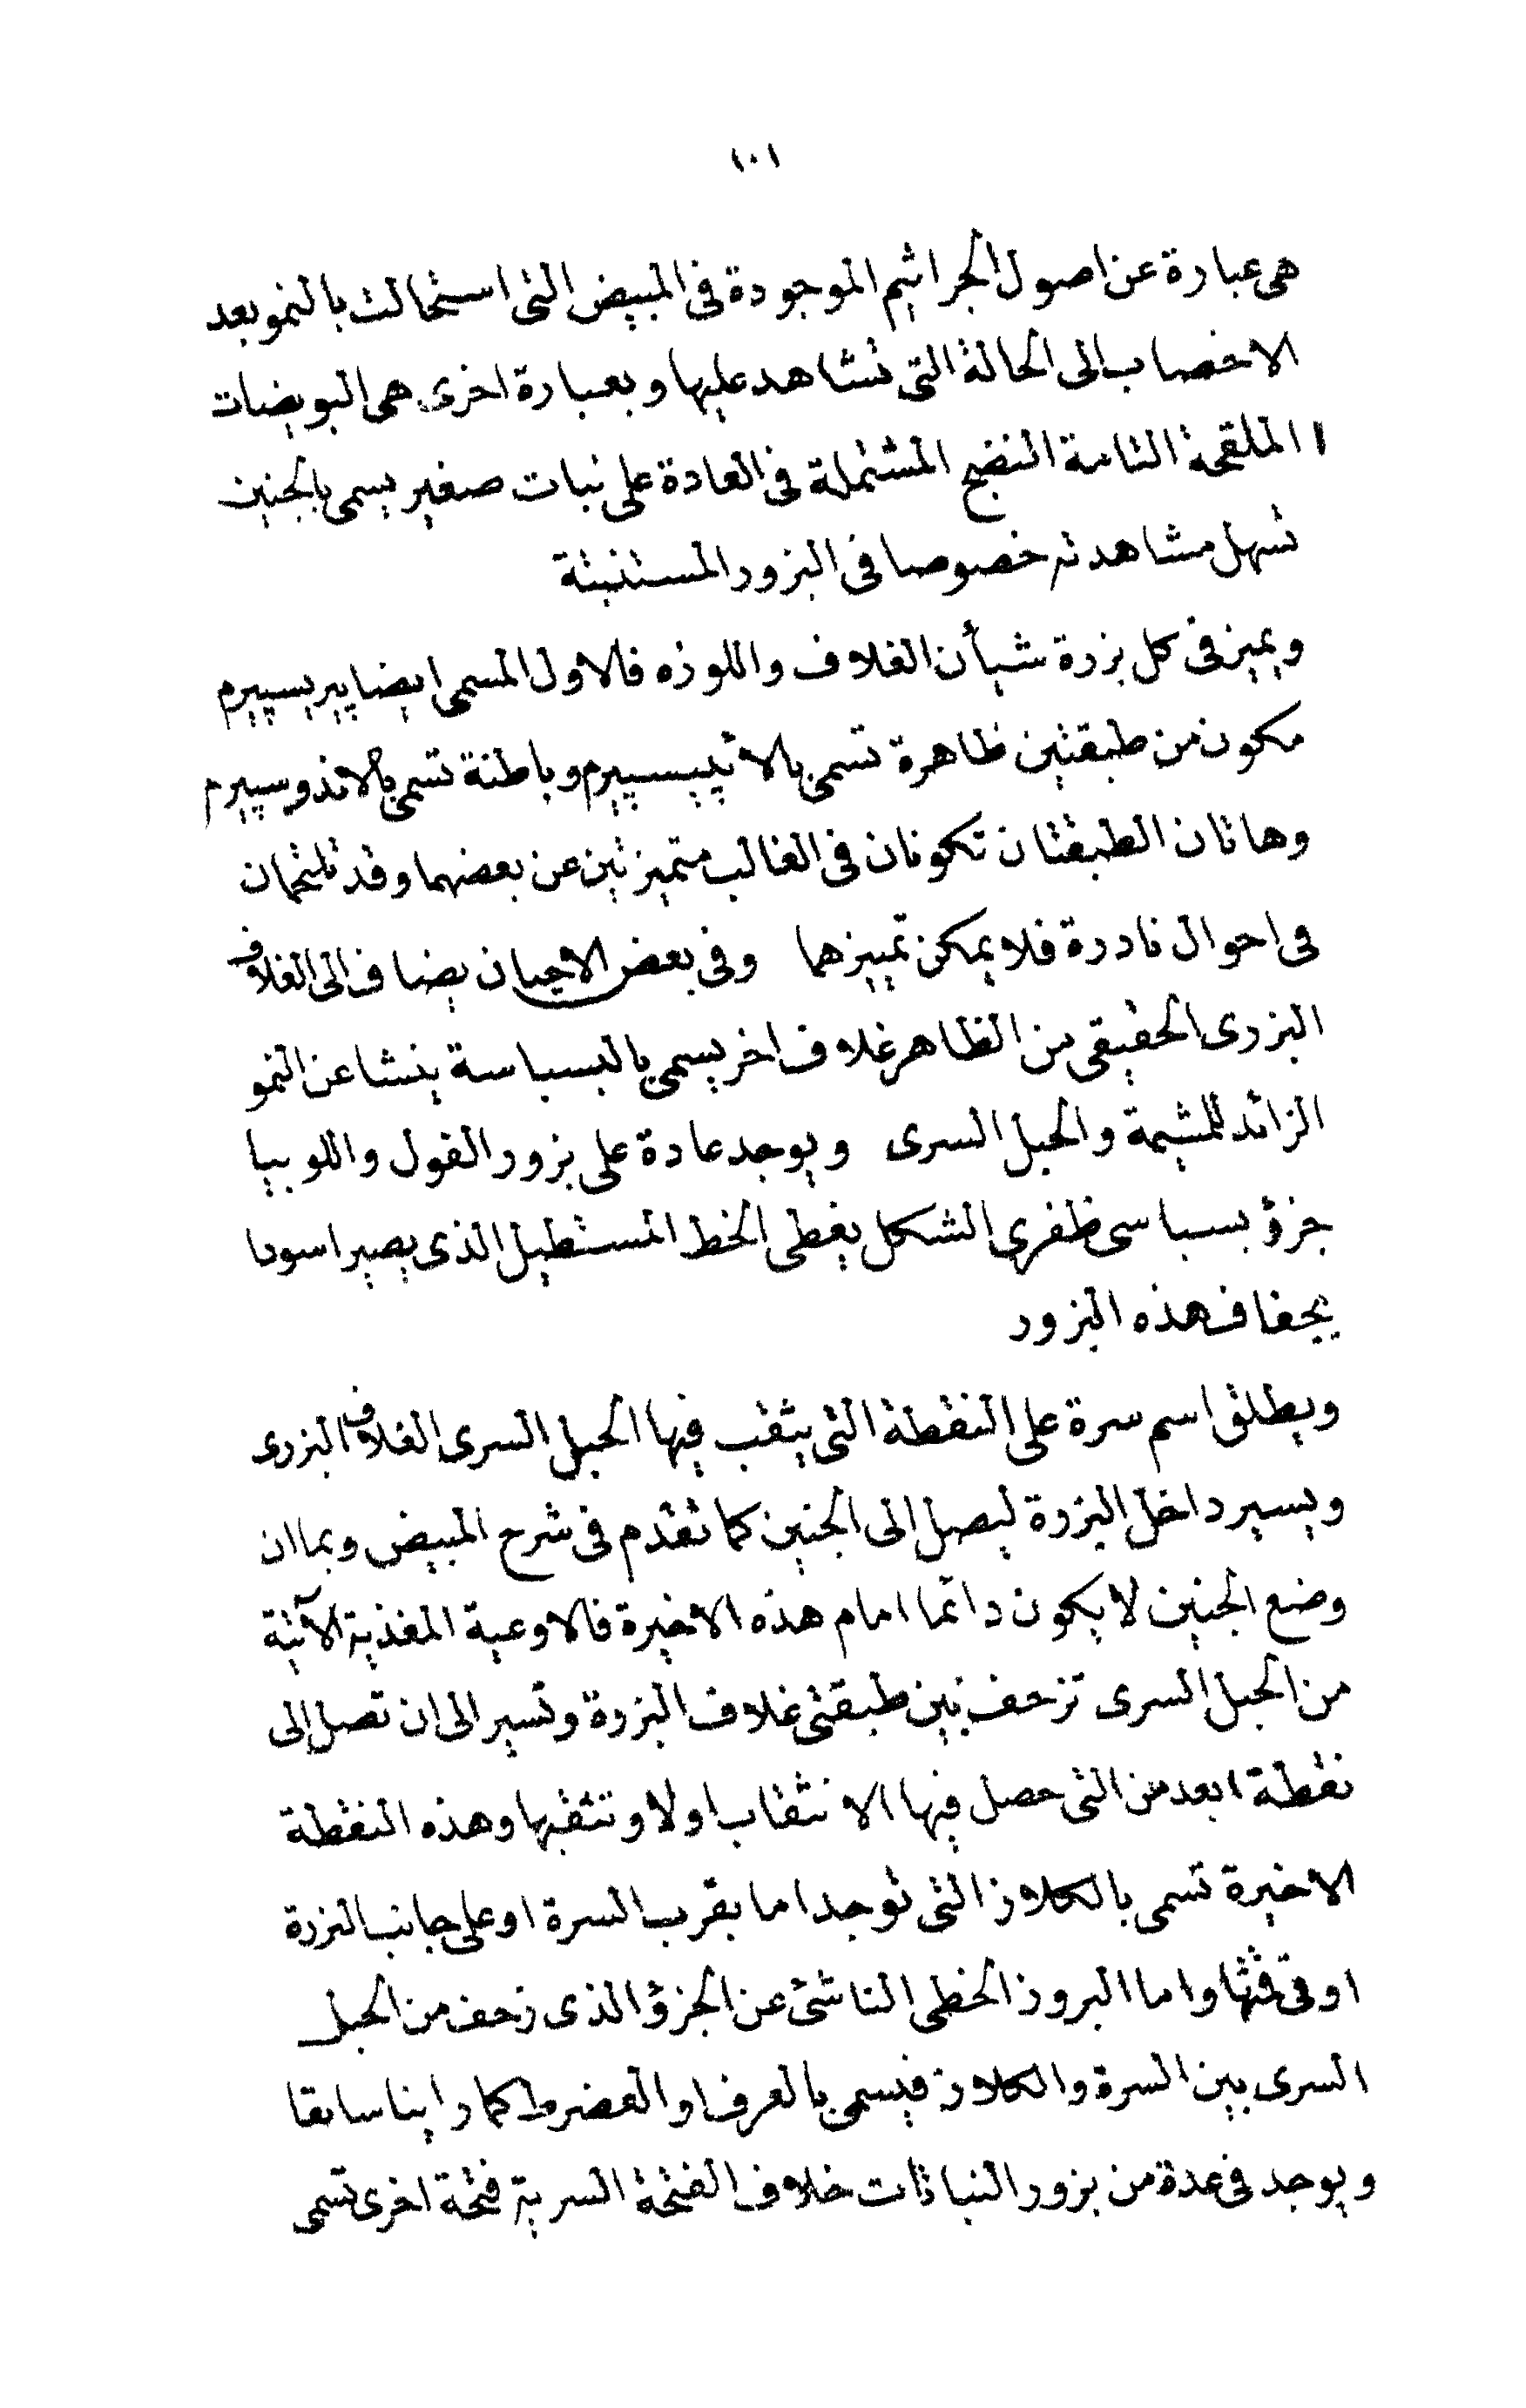 ١٠١
هى عبارة عن اصول الجراثيم الموجودة فى المبيض التى استحالت بالنمو بعد
الاخصاب الى الحالة التى تشاهد عليها وبعبارة اخرى هى البويضات
الملقحة التامة النضج المشتملة فى العادة على نبات صغير يسمى بالجنين
تسهل مشاهدته خصوصا فى البزور المستنبتة
ويميز فى كل بزرة شيأن الغلاف واللوزه فالاول المسمى ايضا پيريسپيرم
مكون من طبقتين ظاهرة تسمى بالاتيسپيرم وباطنة تسمى بالاندوسپيرم
وهاتان الطبقتان تكونان فى الغالب متميزتين عن بعضهما وقد تلتحمان
فى احوال نادرة فلا يمكن تمييزهما وفى بعض الاحيان يضاف الى الغلاف
البزرى الحقيقى من الظاهر غلاف اخر يسمى بالبسباسة ينشا عن النمو
الزائد للمشيمة والحبل السرى ويوجد عادة على بزور الفول واللوبيا
جزؤ بسباسى ظفرى الشكل يغطى الخط المستطيل الذى يصير اسودا
بجفاف هذه البزور
ويطلق اسم سرة على النقطة التى يثقب فيها الحبل السرى الغلاف البزرى
ويسير داخل البزرة ليصل الى الجنين كما تقدم فى شرح المبيض وبما ان
وضع الجنين لا يكون دائما امام هذه الاخيرة فالاوعية المغذية الآتية
من الحبل السرى تزحف بين طبقتى غلاف البزرة وتسير الى ان تصل الى
نقطة ابعد من التى حصل فيها الانثقاب اولا وتثقبها وهذه النقطة
الاخيرة تسمى بالكلاز التى توجد اما بقرب السرة او على جانب البزرة
او فى قمتها واما البروز الخطى الناشئ عن الجزؤ الذى زحف من الحبل
السرى بين السرة والكلاز فيسمى بالعرف او العضرط كما راينا سابقا
ويوجد فى عدة من بزور النباتات خلاف الفتحة السرية فتحة اخرى تسمى